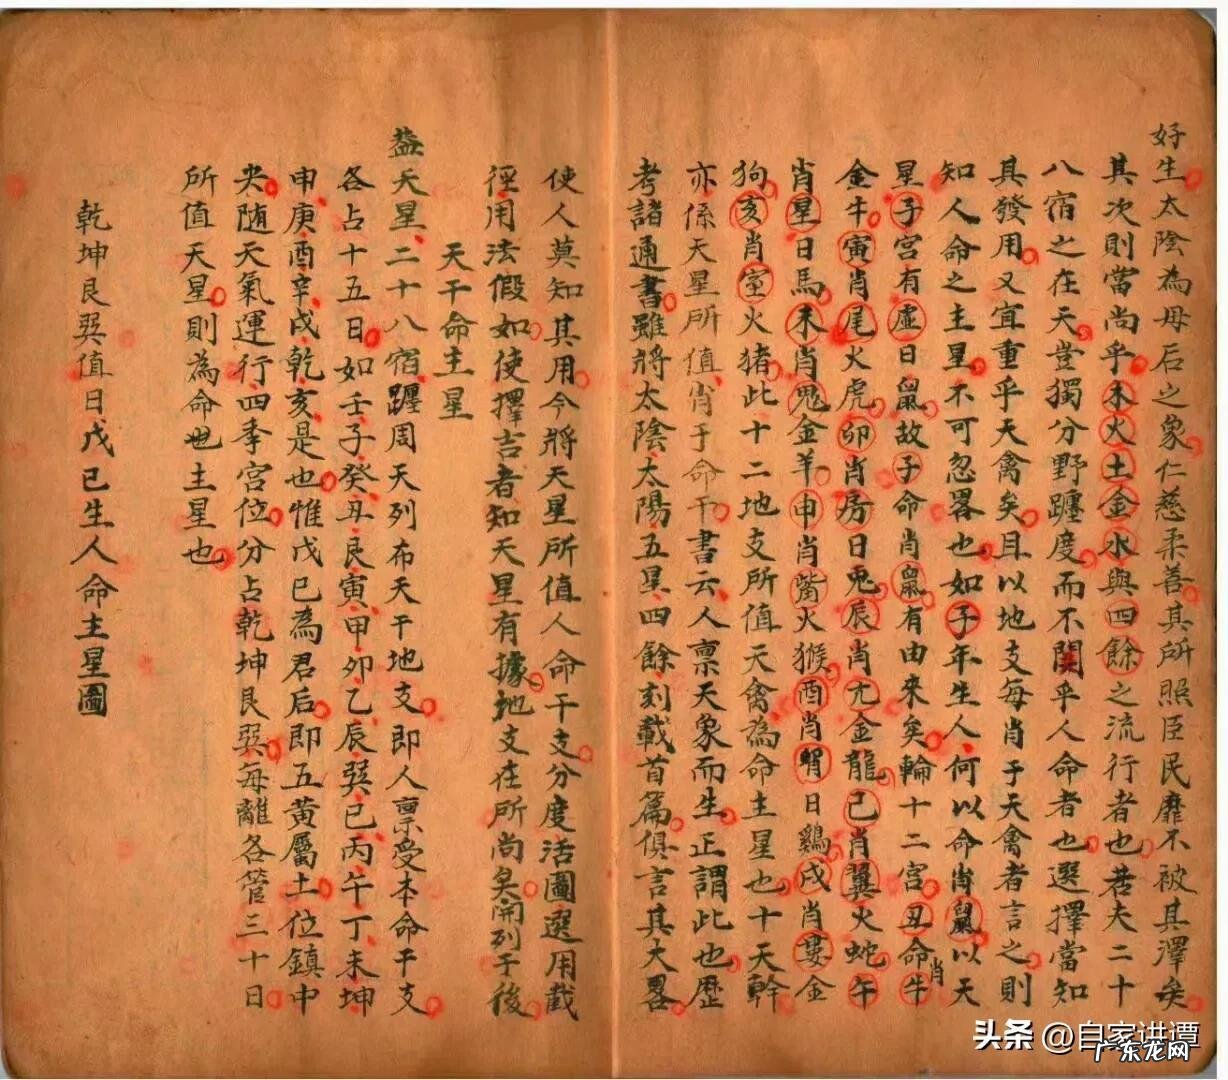 好生太陰為母后之象仁慈柔善其所照臣民靡不被其澤矣
其次則當尚乎木火土金水與四餘之流行者也若夫二十
八宿之在天豈獨分野躔度而不関乎人命者也選擇當知
其發用又宜重乎天禽矣且以地支每肖于天禽者言之則
知人命之主星不可忽畧也如子年生人何以命肖鼠以天
星子宮有虛日鼠故子命肖鼠有由來矣輪十二宮丑命肖牛
金牛寅肖尾火虎卯肖房日兎辰肖亢金龍巳肖翼火蛇午
肖星日馬未肖鬼金羊申肖觜火猴酉肖昴日鷄戌肖婁金
狗亥肖室火猪此十二地支所值天禽為命主星也十天幹
亦係天星所值肖于命干書云人禀天象而生正謂此也歴
考諸通書雖將太陰太陽五星四餘刻載首篇俱言其大畧
使人莫知其用今將天星所值人命干支分度活圖選用截
徑用法假如使擇吉者知天星有據地支在所尚矣開列于後
天干命主星
盖天星二十八宿躔周天列布天干地支即人禀受本命干支
各占十五日如壬子癸丑艮寅甲卯乙辰巽巳丙午丁未坤
申庚酉辛戌乾亥是也惟戊己為君后即五黄屬土位鎮中
央随天氣運行四季宮位分占乾坤艮巽每離各管三十日
所值天星則為命主星也
乾坤艮巽值日戊己生人命主星圖
头条 @自家讲谭
广东龙网